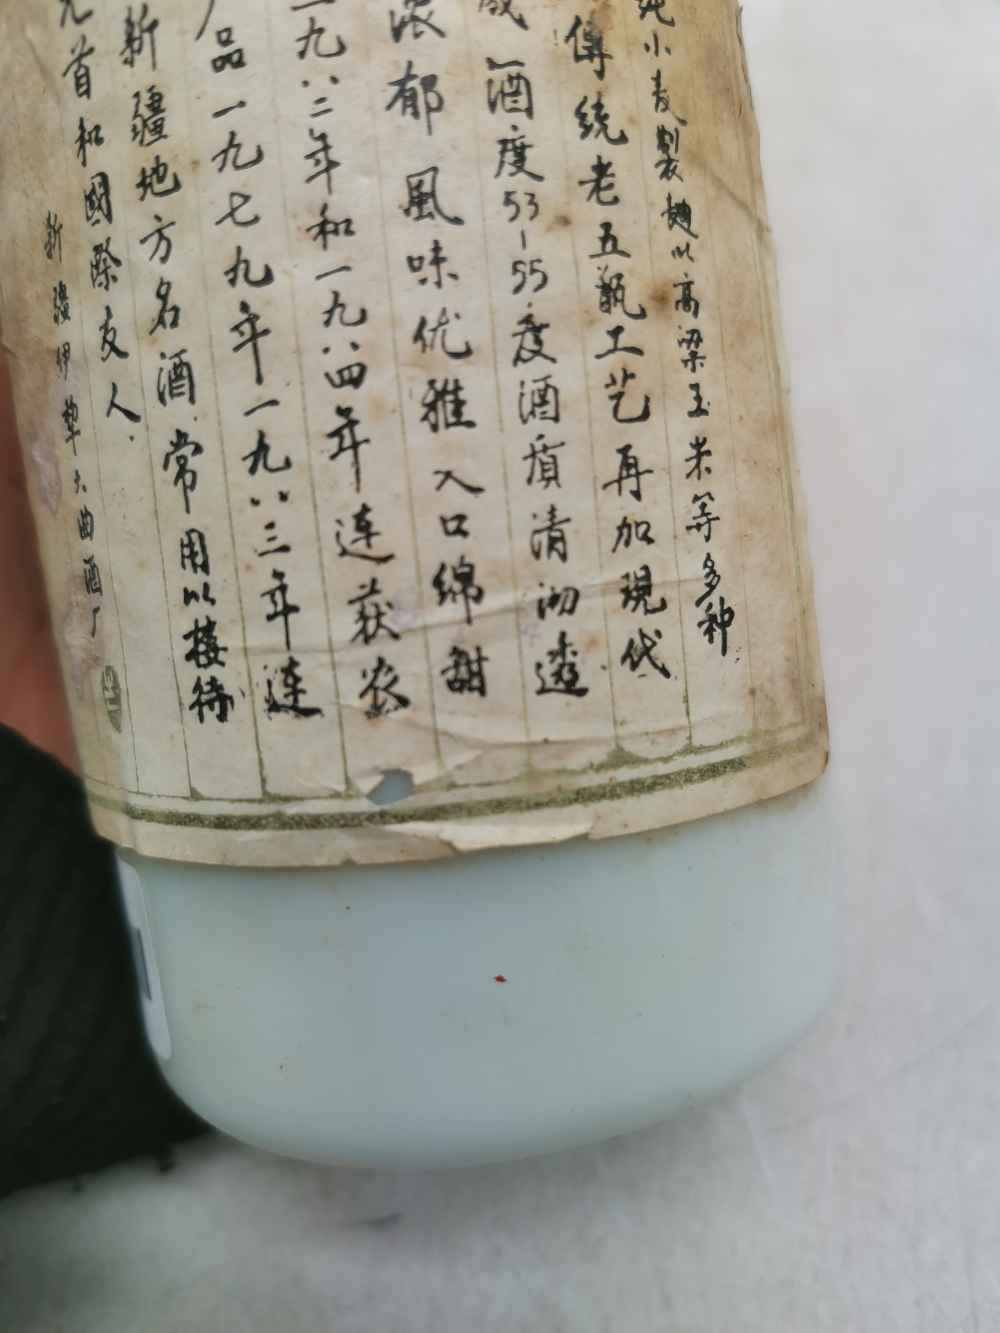 纯小麦製麯以高粱玉米等多种
傳统老五甑工艺再加現代
成酒度53-55度酒质清沏透
浓郁風味优雅入口绵甜
一九八二年和一九八四年连获农
产品一九七九年一九八三年连
新疆地方名酒.常用以接待
元首和國際友人.
新疆伊犂大曲酒厂